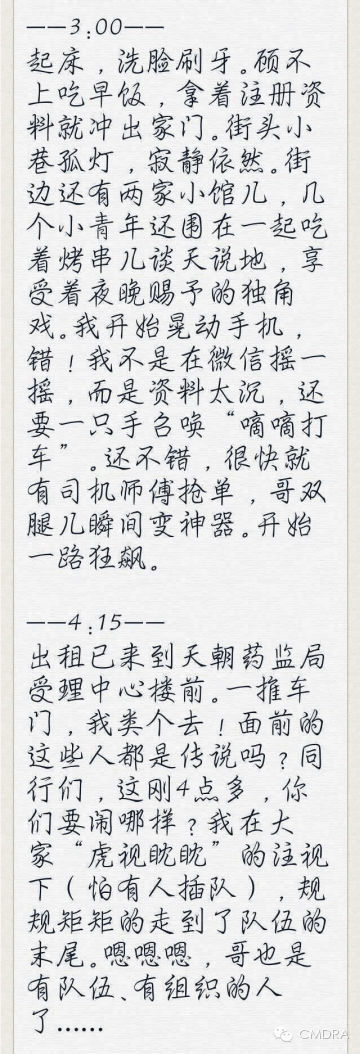 ——3:00——
起床，洗脸刷牙。顾不
上吃早饭，拿着注册资
料就冲出家门。街头小
巷孤灯，寂静依然。街
边还有两家小馆儿，几
个小青年还围在一起吃
着烤串儿谈天说地，享
受着夜晚赐予的独角
戏。我开始晃动手机，
错！我不是在微信摇一
摇，而是资料太沉，还
要一只手召唤“嘀嘀打
车”。还不错，很快就
有司机师傅抢单，哥双
腿儿瞬间变神器。开始
一路狂飙。
——4:15——
出租已来到天朝药监局
受理中心楼前。一推车
门，我类个去！面前的
这些人都是传说吗？同
行们，这刚4点多，你
们要闹哪样？我在大
家“虎视眈眈”的注视
下（怕有人插队），规
规矩矩的走到了队伍的
末尾。嗯嗯嗯，哥也是
有队伍、有组织的人
了……
CMDRA